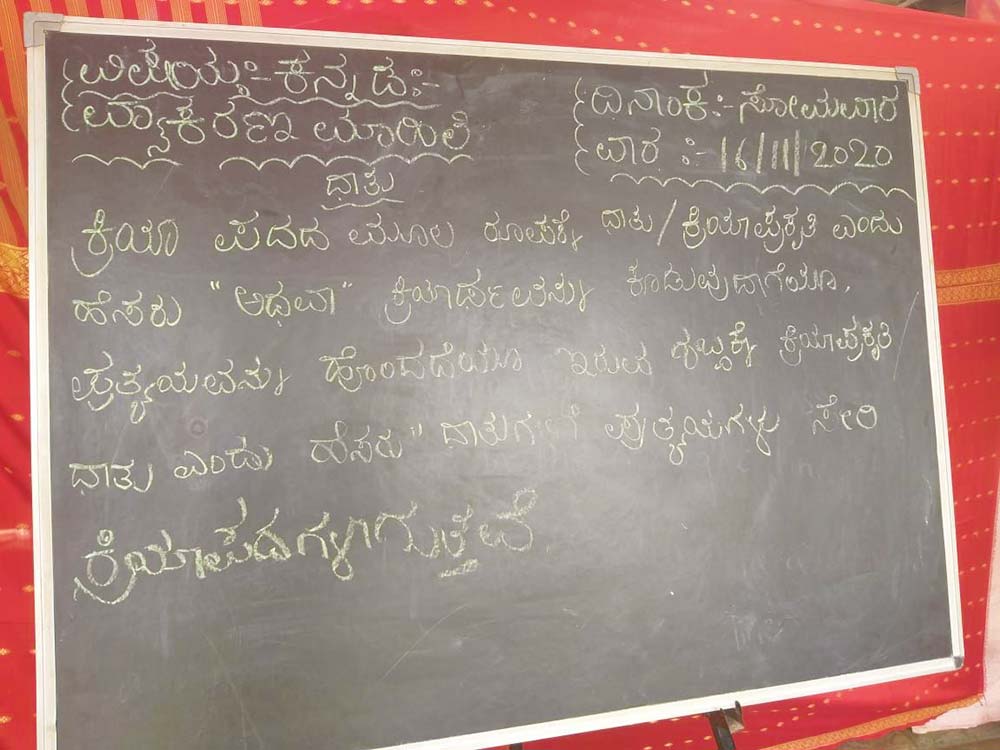 ವಿಷಯ:- ಕನ್ನಡ:-
ವ್ಯಾಕರಣ ಮಾಹಿತಿ
ದಿನಾಂಕ:- ಸೋಮವಾರ
ವಾರ :- 16/11/2020
ಧಾತು
ಕ್ರಿಯಾ ಪದದ ಮೂಲ ರೂಪಕ್ಕೆ ಧಾತು/ಕ್ರಿಯಾಪ್ರಕೃತಿ ಎಂದು
ಹೆಸರು "ಅಥವಾ" ಕ್ರಿಯಾರ್ಥವನ್ನು ಕೊಡುವುದಾಗಿಯೂ,
ಪ್ರತ್ಯಯವನ್ನು ಹೊಂದದೆಯೂ ಇರುವ ಶಬ್ದಕ್ಕೆ ಕ್ರಿಯಾಪ್ರಕೃತಿ
ಧಾತು ಎಂದು ಹೆಸರು" ಧಾತುಗಳಿಗೆ ಪ್ರತ್ಯಯಗಳು ಸೇರಿ
ಕ್ರಿಯಾಪದಗಳಾಗುತ್ತವೆ